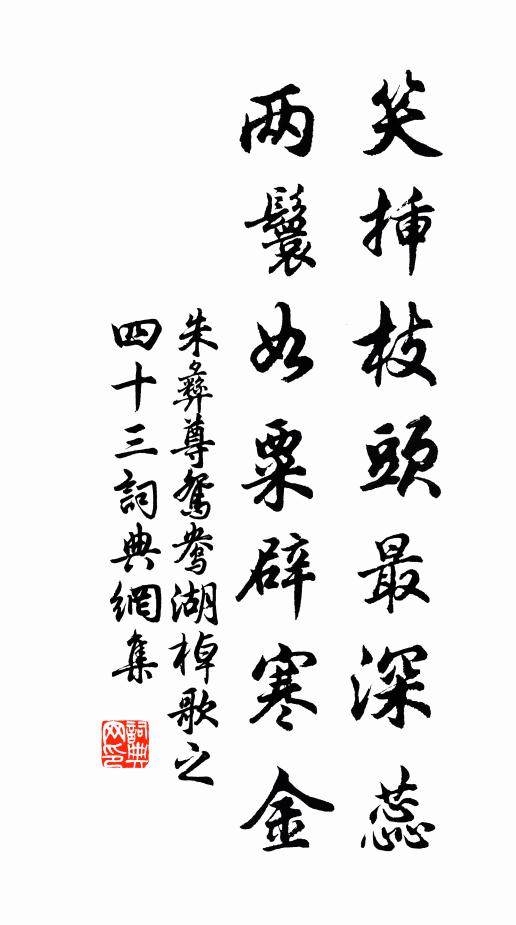 笑揷枝頭最深蕊
两鬟如粟辟寒金
朱彝尊鴛鴦湖棹歌之
四十三詞典網集
詞典
网印